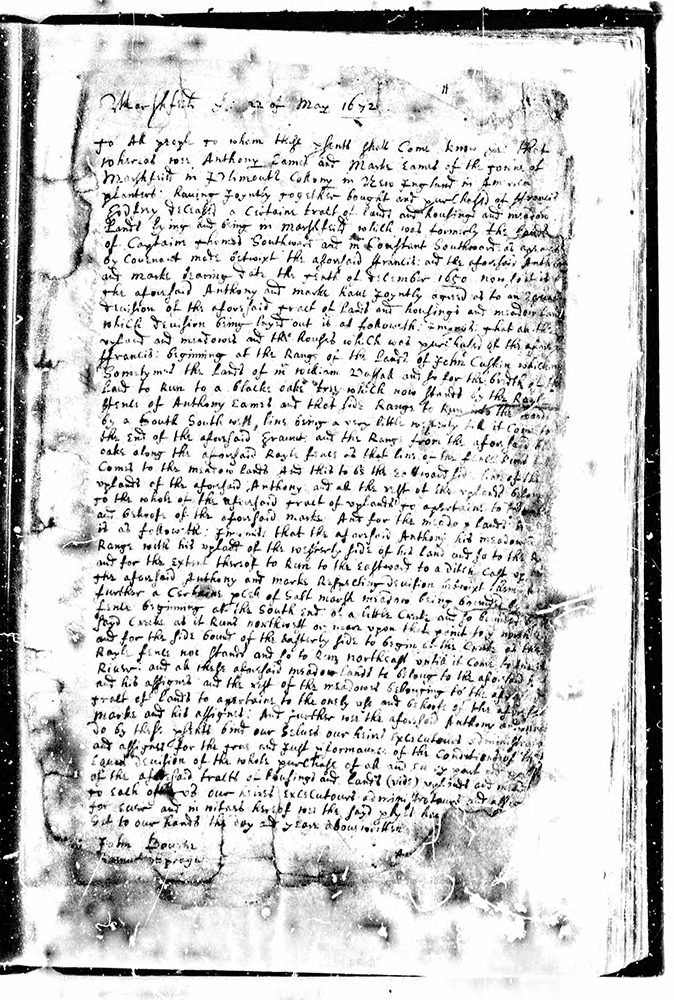 Marshfield 22 of May 1672
To All people to whom these psents shall Come know ye: that
whereas wee Anthony Eames and Marke Eames of the towne of
Marshfeild in Plimouth Collony in New England in America
planters: haveing Joyntly together bought and purchased of ffrancis
Godfrey deceased a Certaine tract of lands and housings and meadow
Lands lying and being in Marshfeild which was formerly the lands
of Captaine Thomas Southworth and mr Constant Southworth as apears
by Covenant made betwixt the aforsaid ffrancis and the aforsaid Anthony
and marke bearing date the tenth of december 1650 now
the aforsaid Anthony and marke have Joyntly agreed as to an Equall
devision of the aforesaid tract of lands and housings and meadow lands
which devision being layed out is as followeth: that all the
upland and meadows and the houses which was purchased of the aforsaid
ffrancis: beginning at the Range of the lands of John
Sometymes the lands of mr William Vassall and so for the breadth of
land to Run to a blacke oake tree which now stands by the Rayle
ffence of Anthony Eames and that side Range to Run into the woods
by a South South west line being a very little westerly till it Come to
the End of the aforsaid Graunt, and the Range from the aforsaid
oake along the aforsaid Rayle fence as that line of the fence
Comes to the meadow lands And this to be the Eastward side line of the
uplands of the aforsaid Anthony and all the rest of the uplands belonging
to the whole of the aforsaid tract of uplands to apertaine to
and behoofe of the aforsaid marke: And for the meadow lands
is as followeth: that the aforsaid Anthony his meadow
Range with his upland of the westerly side of his land and so to the
and for the Extent thereof to Run to the Eastward to a ditch Cast up
the aforsaid Anthony and marke Respecting devision betwixt them
further a Certaine pcell of Salt marsh meadow being bounded
fence beginning att the South End of a little Creeke and so
said Creeke as it Runs northwest or neare upon that point
and for the side bound of the easterly side to begin att the Creeke as the
Rayle fence now stands and so to Run northeast untill it Come to
River: and all these aforsaid meadow lands to belong to the aforsaid
and his assignes: and the rest of the meadows belonging to the aforsaid
tract of lands to apertaine to the only use and behoofe of the aforsaid
Marke and his assignes: And further wee the aforsaid Anthony and
do by these psents bind our Selves our heires Executours administrators
and assignes for the true and Just pformance of the Conditions of
Equall devision of the whole purchase of all and every part and
of the aforsaid tracts of housings and lands (viz) uplands and
to each other us our heires Executours administratours and
for ever and in witnes hereof wee the said ptyes have
set to our hands the day and yeare above written
John Bourne